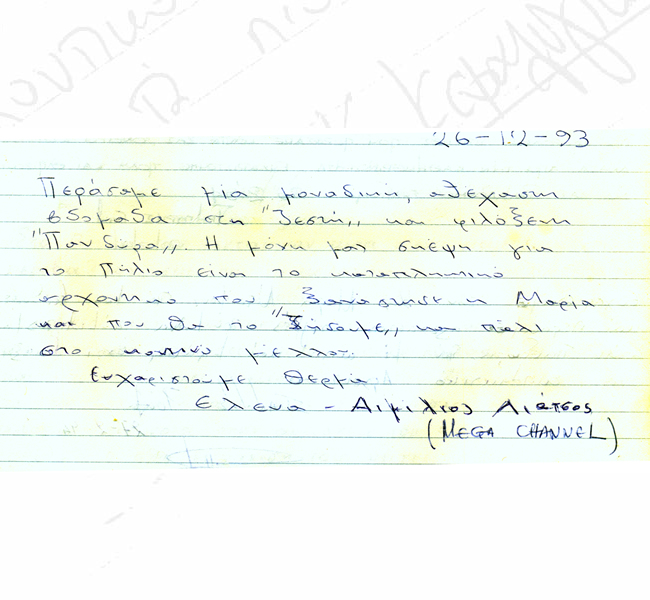 26-12-93
Περάσαμε μία μοναδική, αξέχαστη
εβδομάδα στη "ζεστή,, και φιλόξενη
"Πανδώρα,,. Η μόνη μας σκέψη για
το Πήλιο είναι το καταπληκτικό
αρχοντικό που ξανάστησε η Μαρία
και που θα το "ζήσουμε,, και πάλι
στο κοντινό μέλλον.
Ευχαριστούμε Θερμά
Ελενα - Αιμίλιος Λιάτσος
(MEGA CHANNEL)